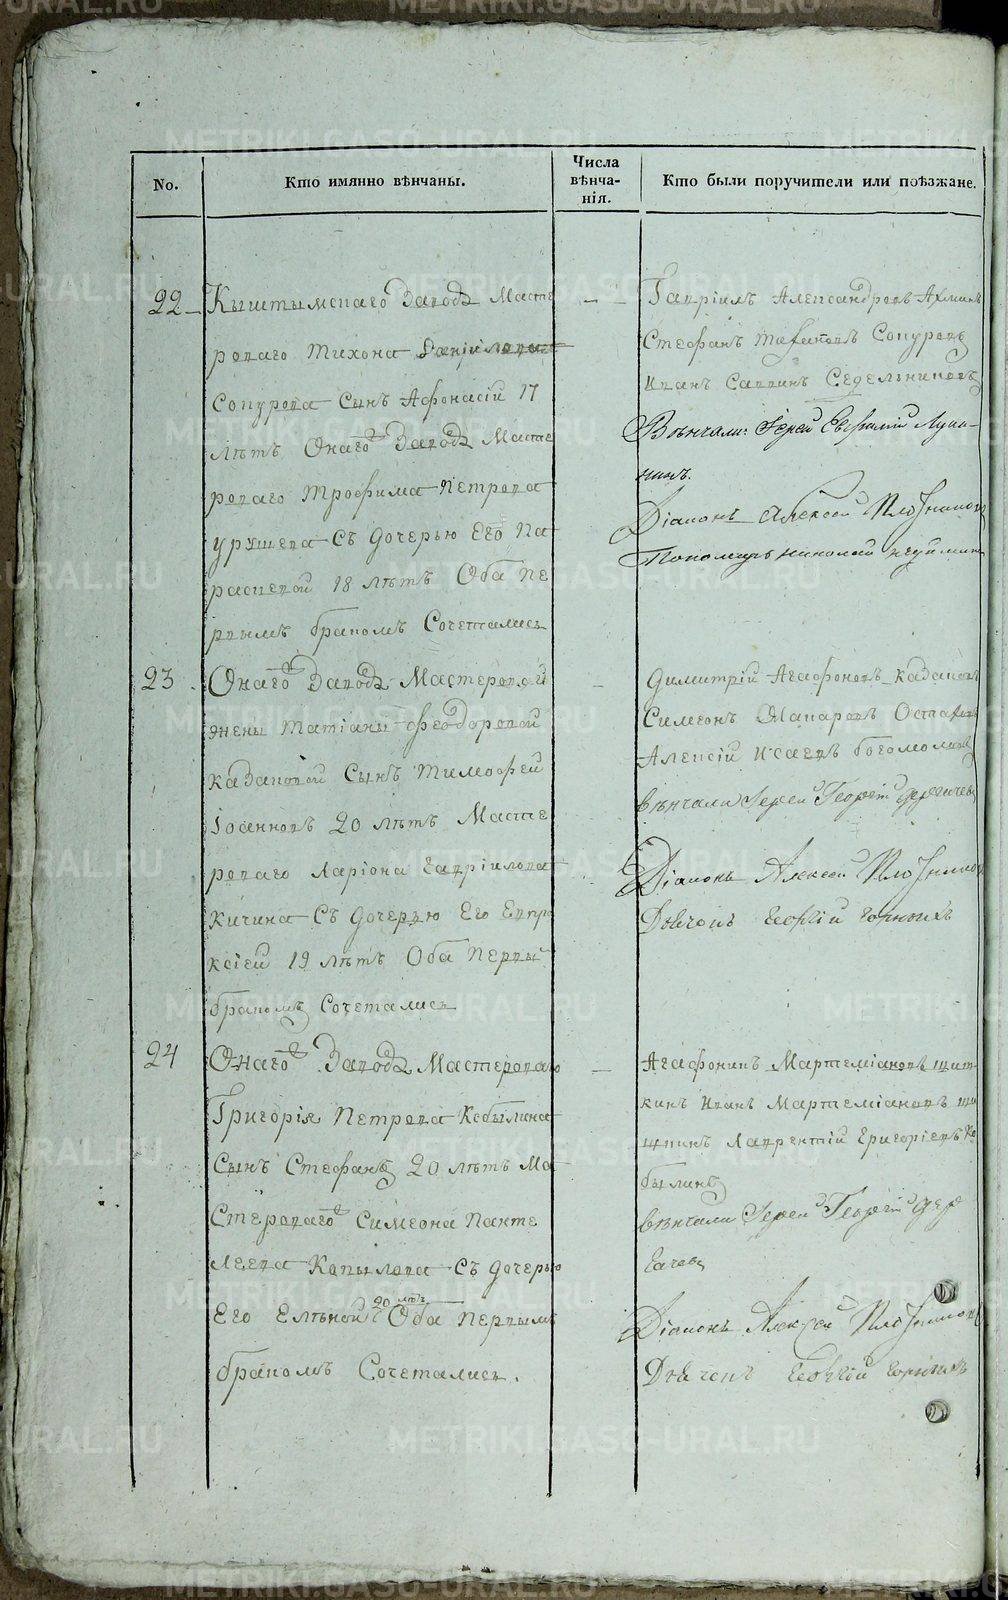 No.
Кто имянно вѣнчаны.
Числа
вѣнча-
нія.
Кто были поручители или поѣзжане.
22
Кыштымскаго Завода Масте
роваго Тихона Даніилова
Сопурова Сынъ Афонасій 17
лѣтъ Онагоже Завода Масте
роваго Трофима Петрова
С дочерью Его Па
раскевой 18 лѣтъ Оба пе
рвымъ бракомъ Сочетались
Гавріилъ Александровъ
Стефанъ Сопуровъ
Иванъ Саввинъ Седельниковъ
Вѣнчали: Іерей Евфимій Луки-
нинъ.
Діаконъ Алексей Плотников
Пономарь Николай
23
Онагоже Завода Мастеровой
жены Татіаны Феодоровой
Казаковой Сынъ Тимофей
20 лѣтъ Масте
роваго Ларіона Гавріилова
Кичина Съ дочерью Его Евпра
ксіей 19 лѣтъ Оба Первы
бракомъ Сочетались
Димитрій Агафоновъ Казаковъ
Симеонъ Макаровъ
Алексій Исаевъ Богомоловъ
вѣнчали Іерей Георгій
Діаконъ Алексей Плотников
Дьячокъ Георгій
24
Онагоже Завода Мастероваго
Григорія Петрова Кобылина
Сынъ Стефанъ 20 лѣтъ Ма
стероваго Симеона Панте
леева Копылова Съ дочерью
Его Еленой 20 лѣтъ Оба Первымъ
бракомъ Сочетались.
Мартеміановъ Щип
кинъ Иванъ Мартеміановъ Щи
пкинъ Лаврентій Григорьевъ Ко
былинъ
вѣнчали Іерей Георгій
Діаконъ Алексей Плотников
Дьячекъ Георгій
METRIKI.GASO-URAL.RU